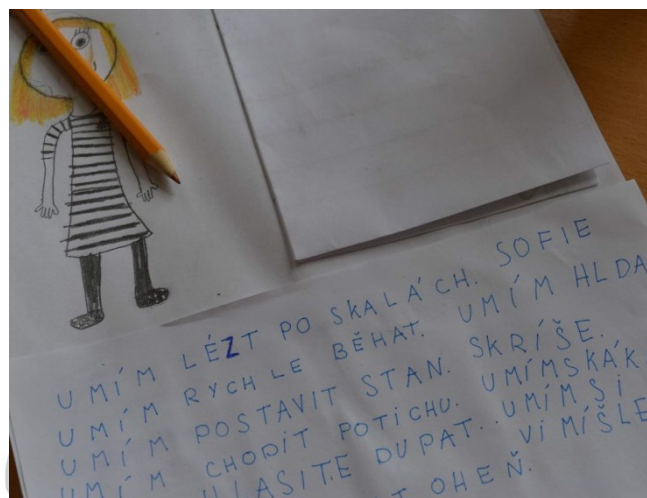 UMÍM LÉZT PO SKALÁCH. SOFIE
UMÍM RYCHLE BĚHAT. UMÍM HLDA
UMÍM POSTAVIT STAN. SKRÍŠE.
UMÍM CHODIT POTICHU. UMÍMSKÁK
UMÍM HLASITE DUPAT.. UMÍM SI
VIMÍŠLE
OHEŇ.